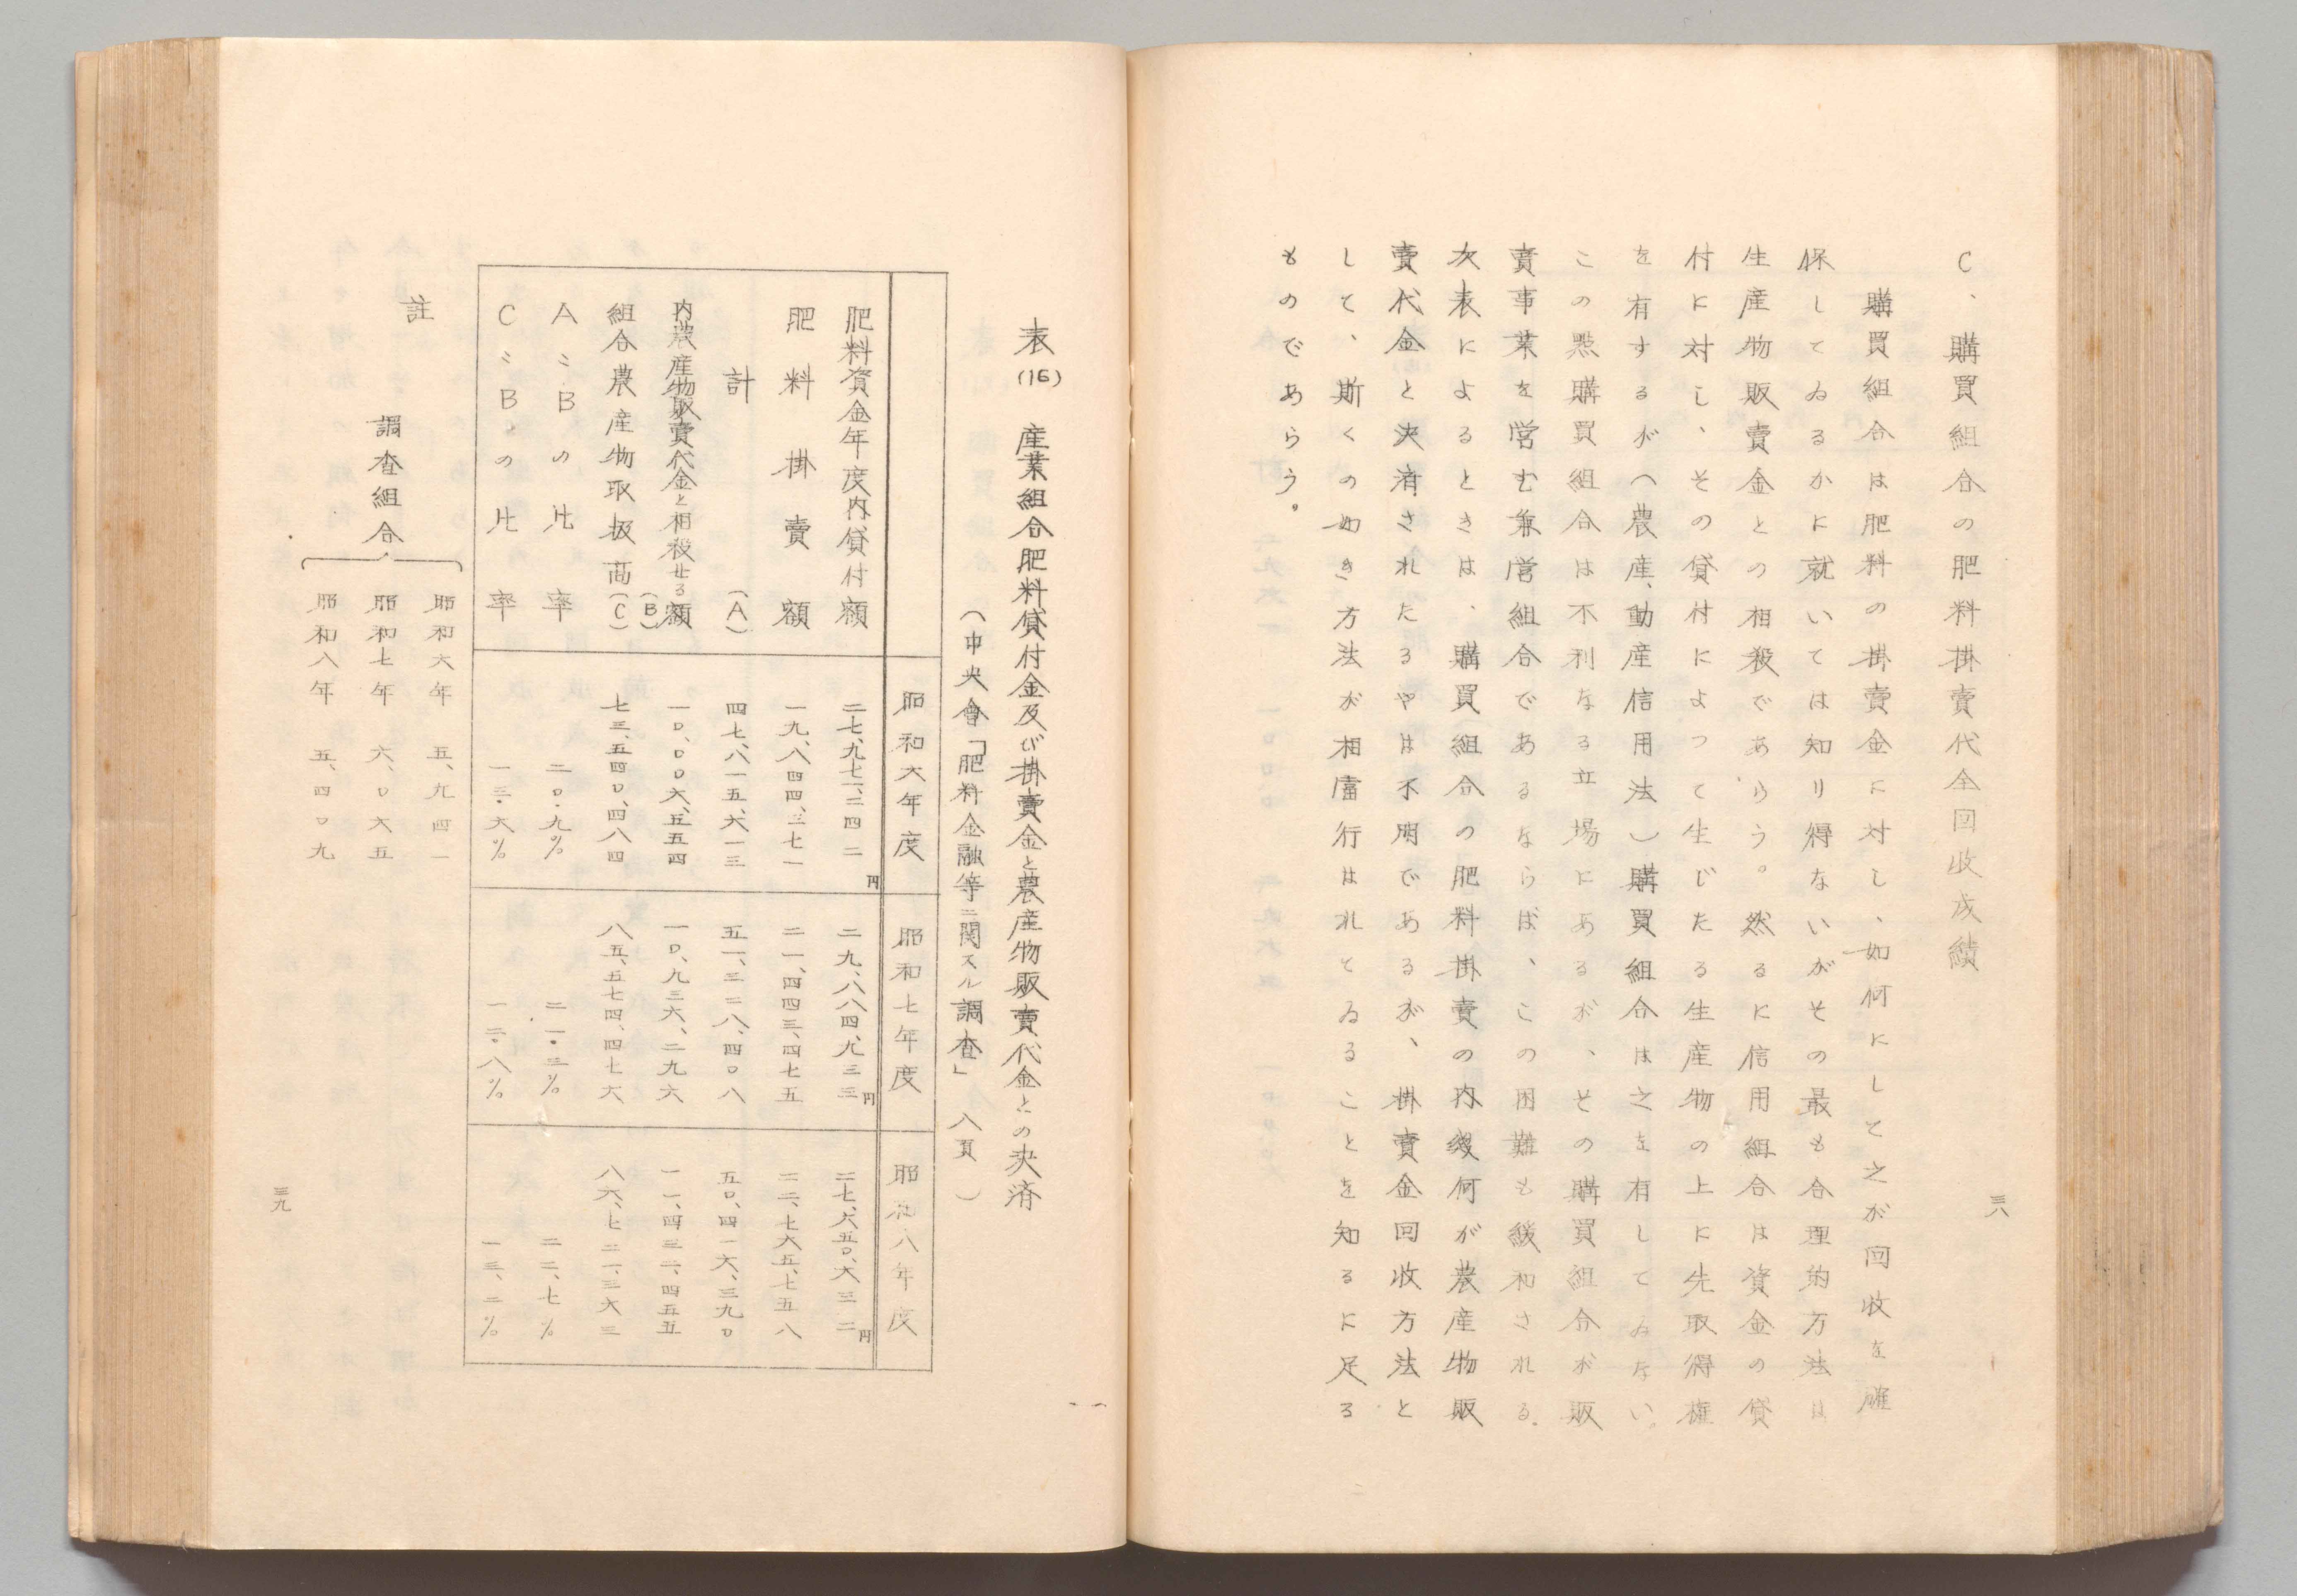 三八
C、購買組合の肥料掛賣代全回收成績
購買組合は肥料の掛賣金に対し、如何にして之が回收を確
保してゐるかに就いては知り得ないがその最も合理的方法は
生産物販賣金との相殺であらう。然るに信用組合は資金の貸
付に対し、その貸付によつて生じたる生産物の上に先取得権
を有するが（農産、動産信用法）購買組合は之を有してゐない。
この㸃購買組合は不利なる立場にあるが、その購買組合が販
賣事業を営む兼営組合であるならば、この困難も緩和される。
次表によるときは、購買組合の肥料掛賣の内幾何が農産物販
賣代金と決済されたるやは不明であるが、掛賣金回收方法と
して、斯くの如き方法が相當行はれてゐることを知るに足る
ものであらう。
表(16) 産業組合肥料貸付金及び掛賣金と農産物販賣代金との決済
（中央會「肥料金融等ニ関スル調査」 八頁）
昭和六年度 昭和七年度 昭和八年度
肥料資金年度内貸付額 二七、九七一、二四二円 二九、八八四、九三三円 二七、六五〇、六三二円
肥料掛賣額 一九、八四四、三七一 二一、四四三、四七五 二二、七六五、七五八
計 (A) 四七、八一五、六一三 五一、三二八、四〇八 五〇、四一六、三九〇
内農産物販賣代金と相殺せる額 (B) 一〇、〇〇六、五五四 一〇、九三六、二九六 一一、四三二、四五五
組合農産物取扱高 (C) 七三、五四〇、四八四 八五、五七四、四七六 八六、七二一、三六三
AミBの比率 二〇・九% 二一・三% 二二、七%
CミBの比率 一三・六% 一二・八% 一三、二%
註
調査組合
昭和六年 五、九四一
昭和七年 六、〇六五
昭和八年 五、四〇九
三九